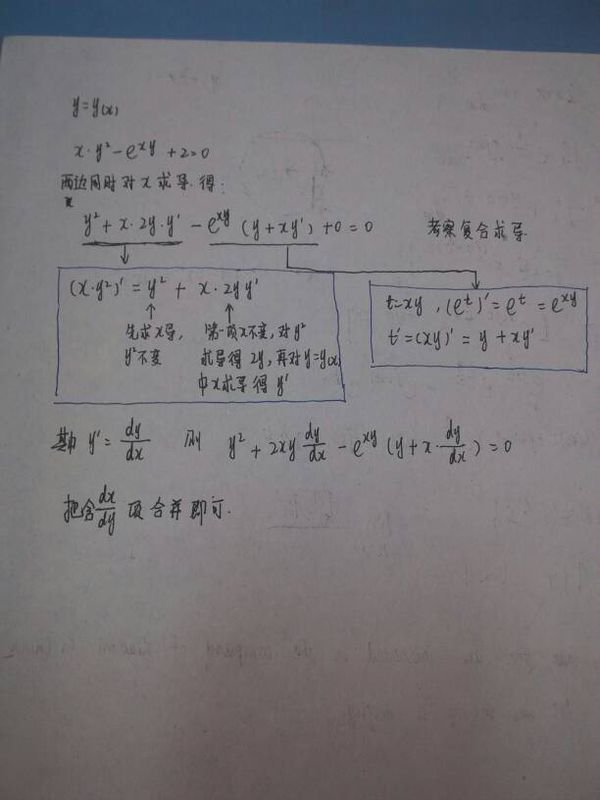 y=y(x)
x·y²-e^{xy}+2=0
两边同时对x求导.得:
y²+x·2y·y'-e^{xy}(y+xy')+0=0 考察复合求导
(x·y²)'=y²+x·2yy'
↑ ↑
先求x导, 第一项x不变,对y²
y²不变 求导得2y,再对y=y(x)
中x求导得y'
t=xy,(e^t)'=e^t=e^{xy}
t'=(xy)'=y+xy'
其中 y'=dy/dx 则 y²+2xy dy/dx-e^{xy}(y+x·dy/dx)=0
把含dx/dy项合并即可.